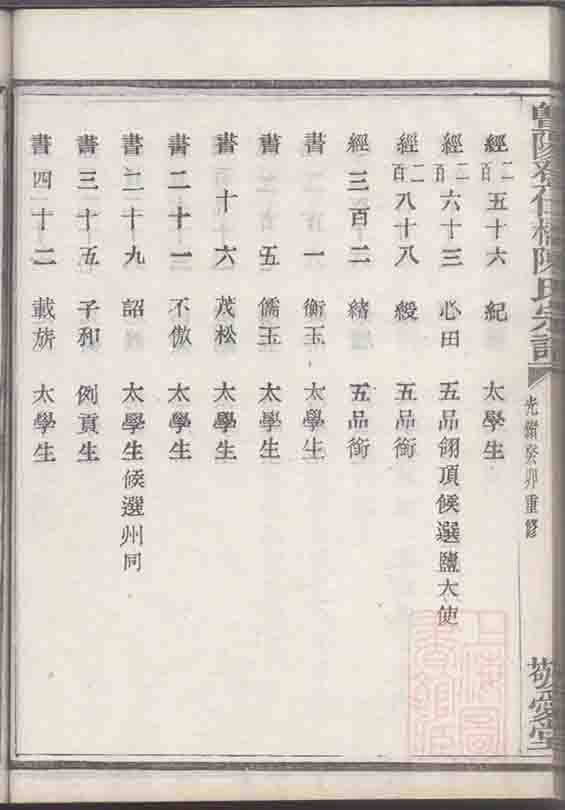 陳氏宗譜
光緒癸卯重修
敬愛堂
經二百五十六 紀 太學生
經二百六十三 心田 五品翎頂候選鹽大使
經二百八十八 綬 五品銜
經三百二 緒 五品銜
書一 衡玉 太學生
書五 儒玉 太學生
書十六 茂松 太學生
書二十一 不傲 太學生
書二十九 詔 太學生候選州同
書三十五 子和 例貢生
書四十二 載旂 太學生
上海圖書館藏